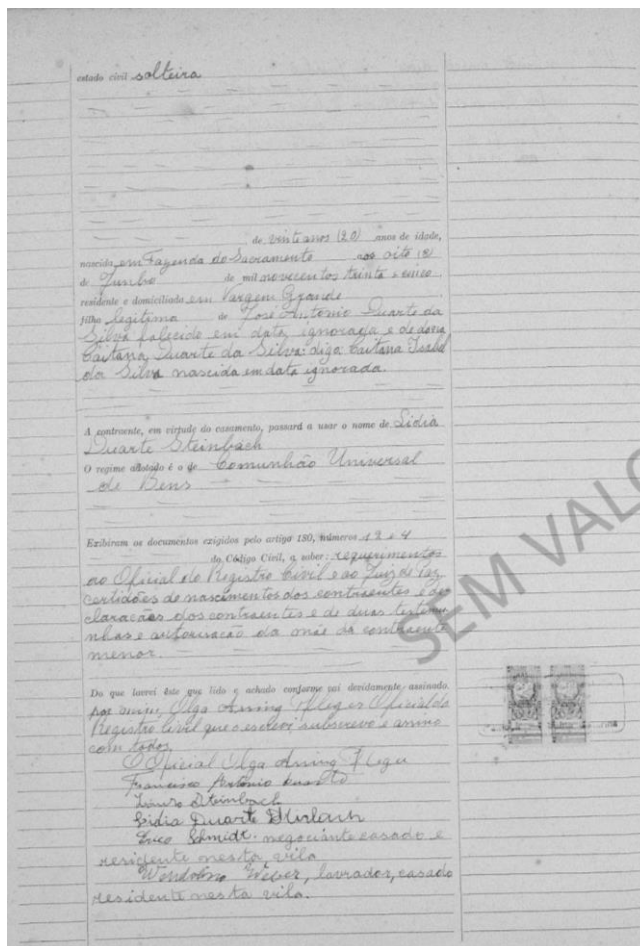 estado civil solteira
de vinte anos (20) anos de idade,
nascida em Fazenda do Sacramento aos oito (8)
de Junho de mil novecentos trinta e cinco
residente e domiciliada em Vargem Grande
filha legitima de José Antonio Duarte da
Silva falecido em data ignorada e de dona
Caitana Duarte da Silva digo Caitana Isabel
da Silva nascida em data ignorada.
A contraente, em virtude do casamento, passará a usar o nome de Lidia
Duarte Steinbach
O regime adotado é o de Comunhão Universal
de Bens
Exibiram os documentos exigidos pelo artigo 180, números 1 2 e 4
do Código Civil, a saber: requerimentos
ao Oficial do Registro Civil e ao Juiz de Paz
certidões de nascimentos dos contraentes e de
claracões dos contraentes e de duas testemu
nhas e autorização da mãe da contraente
menor.
Do que lavrei êste que lido e achado conforme vai devidamente assinado
por mim, Olga Pfleger Oficial do
Registro Civil que o escrevi subscrevo e assino
com todos
O Oficial Olga Pfleger
Francisco Antonio Duarte
Lauro Steinbach
Lidia Duarte Steinbach
Schmidt negociante casado e
residente nesta vila
Wendolino Weber, lavrador, casado
residente nesta vila.
SEM VALO